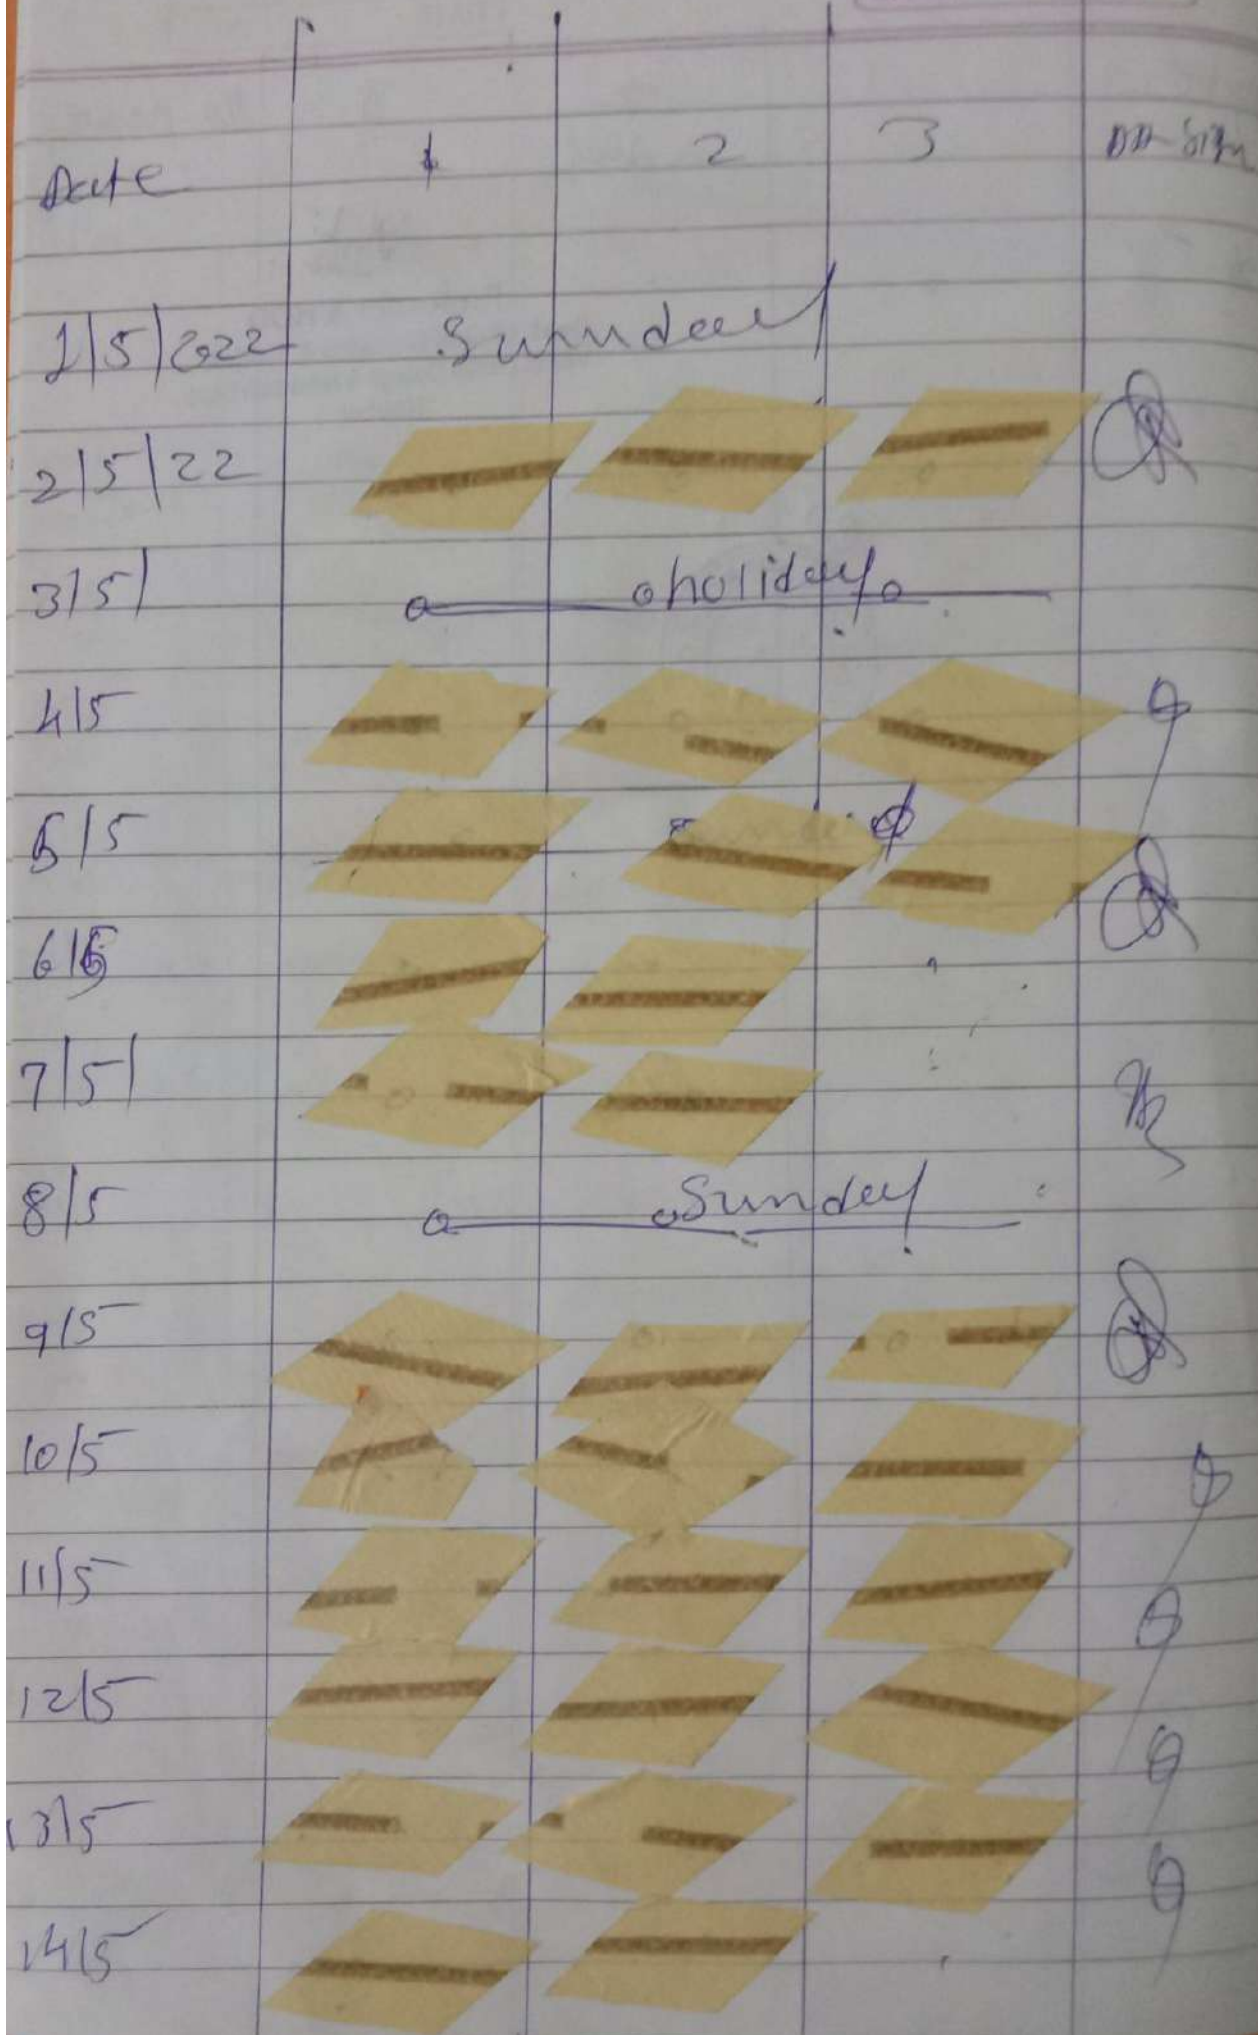 Date 1 2 3
1/5/2022 Sunnday
2/5/22
3/5/ holiday
4/5
5/5
6/5
7/5/
8/5 Sunday
9/5
10/5
11/5
12/5
13/5
14/5